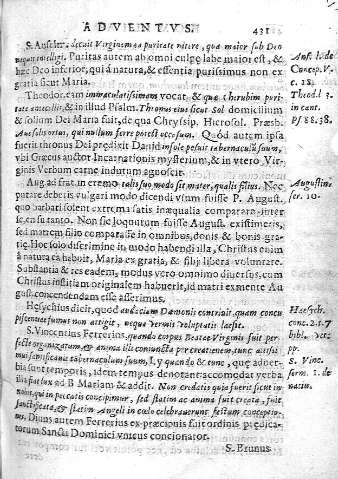 ADVENTVS. 431
S. Anselm. decuit Virginem ea puritate nitere, qua maior sub Deo
nequit intelligi. Puritas autem ab omni culpa labe maior est, &
hæc Deo inferior, qui à natura, & essentia purissimus non ex
gratia sicut Maria.
Theodor. eam immaculatissimam vocat, & quæ Cherubim puri-
tate antecellit, & in illud Psalm. Thonus eius sicut Sol domicilium
& solium Dei Maria fuit, de qua Chrysip. Hierosol. Præsb.
Aue solis ortus, qui nullum ferre potest occasum. Quòd autem ipsa
fuerit thronus Dei prædixit Dauid in sole posuit tabernaculũ suum,
vbi Græcus auctor Incarnationis mysterium, & in vtero Vir-
ginis Verbum carne indutum agnoscit.
Aug. ad frat. in eremo talis suo modo sit mater, qualis filius. Nec
putare debetis vulgari modo dicendi vsum fuisse P. August.
quo barbari solent extrema satis inæqualia comparare inter
se, cum tanto. Non sic loquutum fuisse August. existimeris,
sed matrem filio comparasse in omnibus, donis & bonis gra-
tiæ. Hoc solo discrimine in modo habendi illa, Christus enim
à natura ea habuit, Maria ex gratia, & filij libera voluntate.
Substantia & res eadem, modus vero omnino diuersus, cum
Christus initium originalem habuerit, id matri ex mente Au-
gust. concendendam esse asserimus.
Hesychius dicit, quod audaciam Dæmonis contriuit, quam concu
piscentiæ fumus non attigit, neque vermis voluptatis læsit.
S. Vincentius Ferrerius, quando corpus Beatæ Virginis fuit per-
fectè organizatum, & anima illi coniuncta per creationem, tunc altissi
mus sanctificauit tabernaculum suum,
bia sunt temporis, idem tempus denotant accomodat verba
illa fiat lux ad B. Mariam & addit. Non credatis quòd fuerit sicut in
nobis, qui in peccatis concipimur, sed statim ac anima fuit creata, fuit
sanctificata, & statim Angeli in cœlo celebrauerunt festum conceptio-
nis. Diuus autem Ferrerius ex præcipuis fuit ordinis prædica-
torum Sancti Dominici vnicus concionator.
S. Brunus
Ans. l. de
Concep. V.
c. 18.
Theod. l. 3.
in cant.
Ps. 88. 38.
Augustin.
ser. 10.
Hæsych.
conc. 2. t. 7
bibl. vet.
pp.
S. Vinc.
serm. 1. de
natiu.